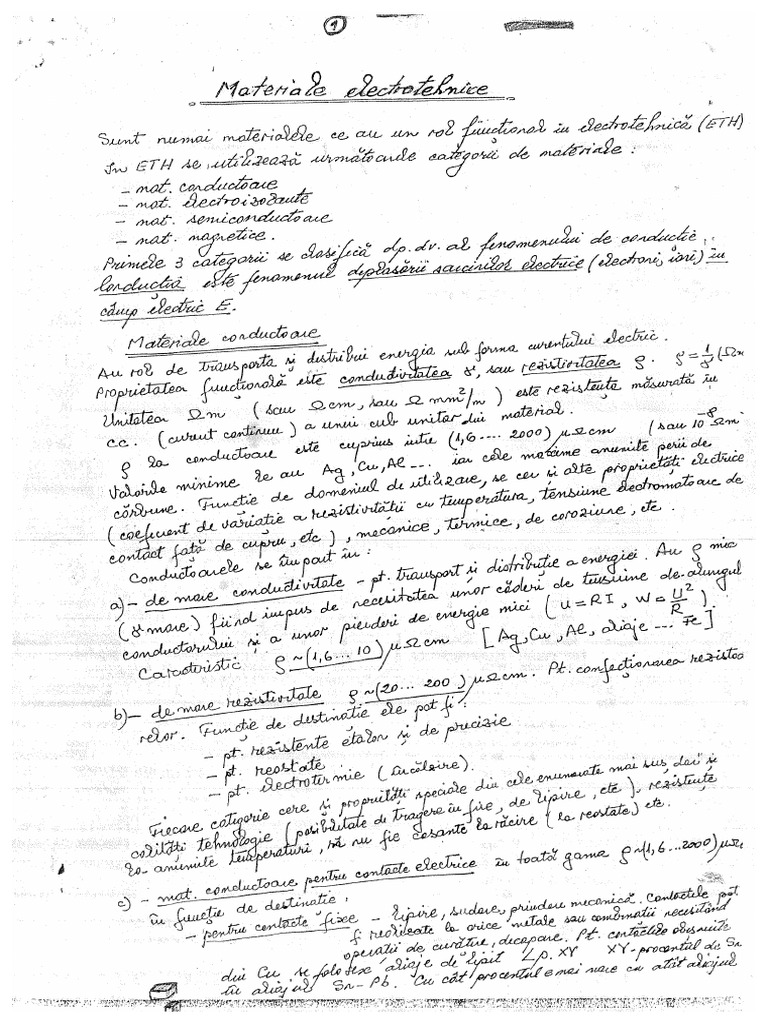 1
Materiale electrotehnice
Sunt numai materialele ce au un rol funcțional în electrotehnică (ETH)
În ETH se utilizează următoarele categorii de materiale :
– mat. conductoare
– mat. electroizolante
– mat. semiconductoare
– mat. magnetice.
Primele 3 categorii se clasifică dp.dv. al fenomenului de conducție.
Conducția este fenomenul deplasării sarcinilor electrice (electroni, ioni) în
câmp electric E.
Materiale conductoare
Au rol de transporta și distribui energia sub forma curentului electric.
Proprietatea funcțională este conductivitatea γ, sau rezistivitatea ρ. ρ = 1/γ (Ωm
Unitatea Ωm (sau Ωcm, sau Ω mm²/m) este rezistența măsurată în
c.c. (curent continuu) a unui cub unitar din material.
ρ la conductoare este cuprins între (1,6 .... 2000) μΩcm (sau 10⁻⁸ Ωm
Valorile minime le au Ag, Cu, Al ... iar cele maxime anumite perii de
cărbune. Funcție de domeniul de utilizare, se cer și alte proprietăți electrice
(coeficient de variație a rezistivității cu temperatura, tensiune electromotoare de
contact față de cupru, etc), mecanice, termice, de coroziune, etc.
Conductoarele se împart în :
a) – de mare conductivitate – pt. transport și distribuție a energiei. Au ρ mic
(γ mare) fiind impus de necesitatea unor căderi de tensiune de-alungul
conductorului și a unor pierderi de energie mici (U = RI, W = U²/R).
Caracteristic ρ ~ (1,6 ... 10) μΩcm [Ag, Cu, Al, aliaje ... Fe]
b) – de mare rezistivitate ρ ~ (20 ... 200) μΩcm. Pt. confecționarea rezistoa
relor. Funcție de destinație ele pot fi :
– pt. rezistențe etalon și de precizie
– pt. reostate
– pt. electrotermie (încălzire).
Fiecare categorie cere și proprietăți speciale din cele enumerate mai sus, dar și
calități tehnologice (posibilitate de tragere în fire, de lipire, etc), rezistență
la anumite temperaturi, să nu fie casante la răcire (la reostate) etc.
c) – mat. conductoare pentru contacte electrice în toată gama ρ ~ (1,6 ... 2000) μΩ
în funcție de destinație.
– pentru contacte fixe – lipire, sudare, prindere mecanică. Contactele pot
fi realizate la orice metale sau combinații necesitând
operații de curățire, decapare. Pt. contactele obișnuite
din Cu se folosesc aliaje de lipit Lp. XY XY – procentul de Sn
în aliajul Sn–Pb. Cu cât procentul e mai mare cu atât aliajul